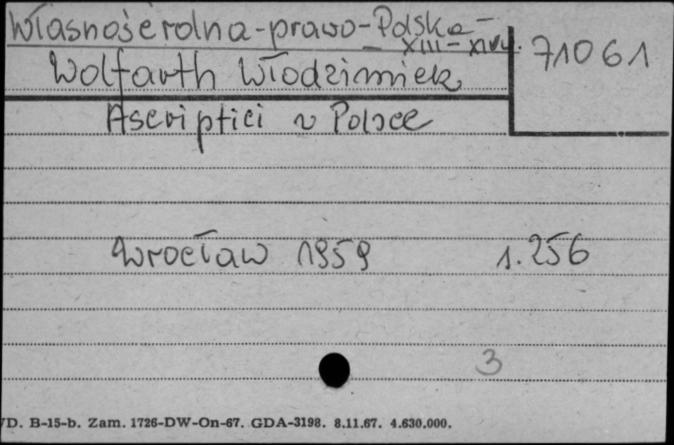 Własność rolna - prawo - Polska -
XIII - XIV w. 71061
Wolfarth Włodzimierz
Ascriptici w Polsce
Wrocław 1959 s. 256
3
D. B-15-b. Zam. 1726-DW-On-67. GDA-3198. 8.11.67. 4.630.000.